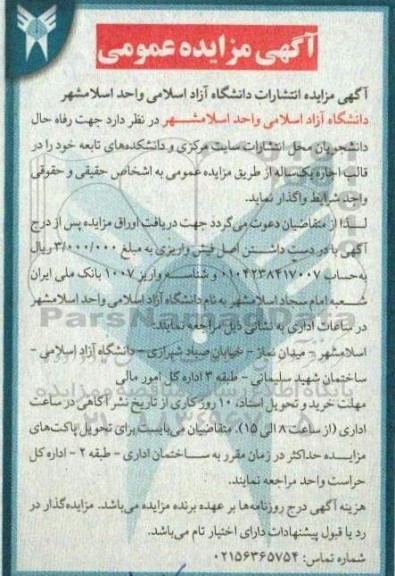 آگهی مزایده عمومی
آگهی مزایده انتشارات دانشگاه آزاد اسلامی واحد اسلامشهر
دانشگاه آزاد اسلامی واحد اسلامشهر در نظر دارد جهت رفاه حال
دانشجویان محل انتشارات سایت مرکزی و دانشکده‌های تابعه خود را در
قالب اجاره یکساله از طریق مزایده عمومی به اشخاص حقیقی و حقوقی
واجد شرایط واگذار نماید.
لذا از متقاضیان دعوت می‌گردد جهت دریافت اوراق مزایده پس از درج
آگهی با در دست داشتن اصل فیش واریزی به مبلغ ۳/۰۰۰/۰۰۰ ریال
به حساب ۰۱۰۴۲۳۸۴۱۷۰۰۷ و شناسه واریز ۱۰۰۷ بانک ملی ایران
شعبه امام سجاد اسلامشهر به نام دانشگاه آزاد اسلامی واحد اسلامشهر
در ساعات اداری به نشانی ذیل مراجعه نمایند.
ParsNamadData
اسلامشهر - میدان نماز - خیابان صیاد شیرازی - دانشگاه آزاد اسلامی -
ساختمان شهید سلیمانی - طبقه ۳ اداره کل امور مالی
مهلت خرید و تحویل اسناد، ۱۰ روز کاری از تاریخ نشر آگاهی در ساعت
اداری (از ساعت ۸ الی ۱۵). متقاضیان می‌بایست برای تحویل پاکت‌های
مزایده حداکثر در زمان مقرر به ساختمان اداری - طبقه ۲ - اداره کل
حراست واحد مراجعه نمایند.
هزینه آگهی درج روزنامه‌ها بر عهده برنده مزایده می‌باشد. مزایده‌گذار در
رد یا قبول پیشنهادات دارای اختیار تام می‌باشد.
شماره تماس: ۰۲۱۵۶۳۶۵۷۵۴